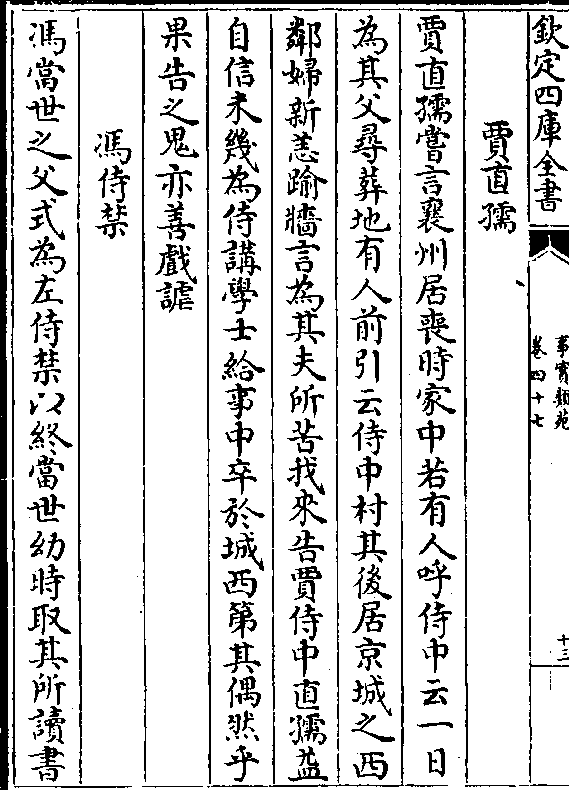 欽定四庫全書
事實類苑
卷四十七
十三
賈直孺
賈直孺嘗言襄州居喪時家中若有人呼侍中云一日
為其父尋葬地有人前引云侍中村其後居京城之西
鄰婦新恙踰牆言為其夫所苦找來告賈侍中直孺益
自信未幾為侍講學士給事中卒於城西第其偶然乎
果告之鬼亦善戲謔
馮侍禁
馮當世之父式為左侍禁以終當世幼時取其所讀書